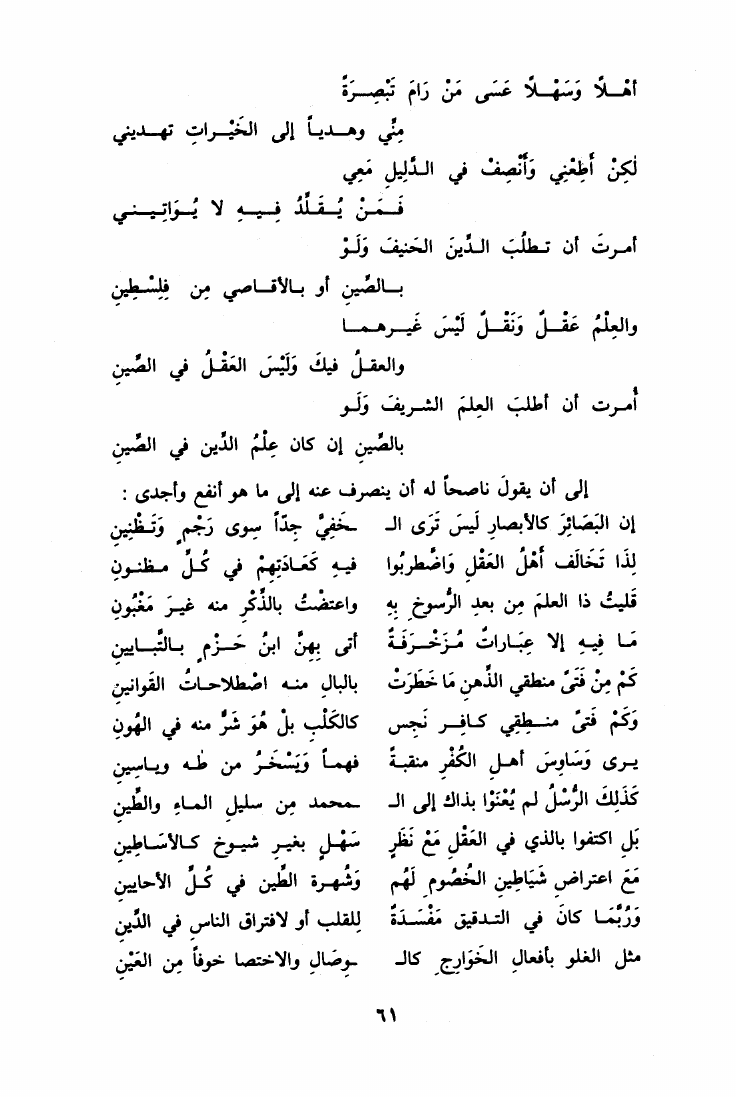 أهْـلًا وَسَهْـلًا عَسَى مَنْ رَامَ تَبْصِـرَةً
مِنِّي وهـدياً إلى الخَيْـراتِ تهـديني
لٰكِنْ أَطِعْنِي وَأَنْصِفْ في الـدَّلِيلِ مَعِي
فَـمَـنْ يُـقَـلِّدُ فِـيـهِ لا يُـوَاتِـيـنـي
أمـرتَ أن تـطلُبَ الـدِّينَ الحَنيفَ وَلَـوْ
بـالصِّينِ أو بـالأقـاصي مِن فِلِسْطِينِ
والعِلْمُ عَقْـلٌ وَنَقْـلٌ لَيْسَ غَيـرهمـا
والعقـلُ فيكَ وَلَيْسَ العَقْـلُ في الصِّينِ
أُمـرت أن أطلبَ العِلمَ الشـريفَ وَلَـو
بالصِّينِ إن كان عِلْمُ الدِّين في الصِّينِ
إلى أن يقولَ ناصحاً له أن ينصرف عنه إلى ما هو أنفع وأجدى :
إن البَصَائِرَ كالأبصارِ لَيسَ تَرَى الـ ـخَفِيَّ جِدّاً سِوى رَجْمٍ وَتَـظْنِينِ
لِذَا تَخَالَف أَهْلُ العَقْلِ وَاضْطربُوا فيهِ كَعَـادَتِهِمْ في كُـلِّ مـظنـونِ
قَليتُ ذا العلمَ مِن بعدِ الرُّسوخِ بِهِ واعتضْتُ بالذِّكْرِ منه غيـرَ مَغْبُونِ
مَـا فِيهِ إلا عِبَـاراتٌ مُـزَخْـرَفَـةٌ أتى بِهِنَّ ابنُ حَـزْمٍ بـالتَّبـايينِ
كَمْ مِنْ فَتىً منطقي الذِّهنِ مَا خَطَرَتْ بالبالِ منـه اصْطلاحـاتُ القَوانينِ
وَكَمْ فَتىً منـطِقِي كـافِـر نَجس كالكَلْبِ بلْ هُوَ شَرٌّ منه في الهُونِ
يـرى وَسَاوِسَ أهـلِ الكُفْرِ منقبـةً فهمـاً وَيَسْخَـرُ من طٰه ويـاسِينِ
كَذَلِكَ الرُّسْلُ لم يُعْنَوْا بذاك إلى الـ ـمحمد مِن سليلِ المـاءِ والطِّينِ
بَل اكتفوا بالذي في العَقْل مَعْ نَظَرٍ سَهْـلٍ بغيـرِ شيـوخ كـالأسَـاطِينِ
مَعَ اعتراضِ شَيَاطِينِ الخُصُومِ لَهُم وَشُهـرة الطِّين في كُـلِّ الأحايين
وَرُبَّمَـا كانَ في التـدقيق مَفْسَـدَةٌ لِلقلب أو لافتراق الناسِ في الدِّينِ
مثل الغلو بأفعالِ الخَوارِجِ كالـ ـوِصَالِ والاختصا خوفاً مِن العَيْنِ
٦١